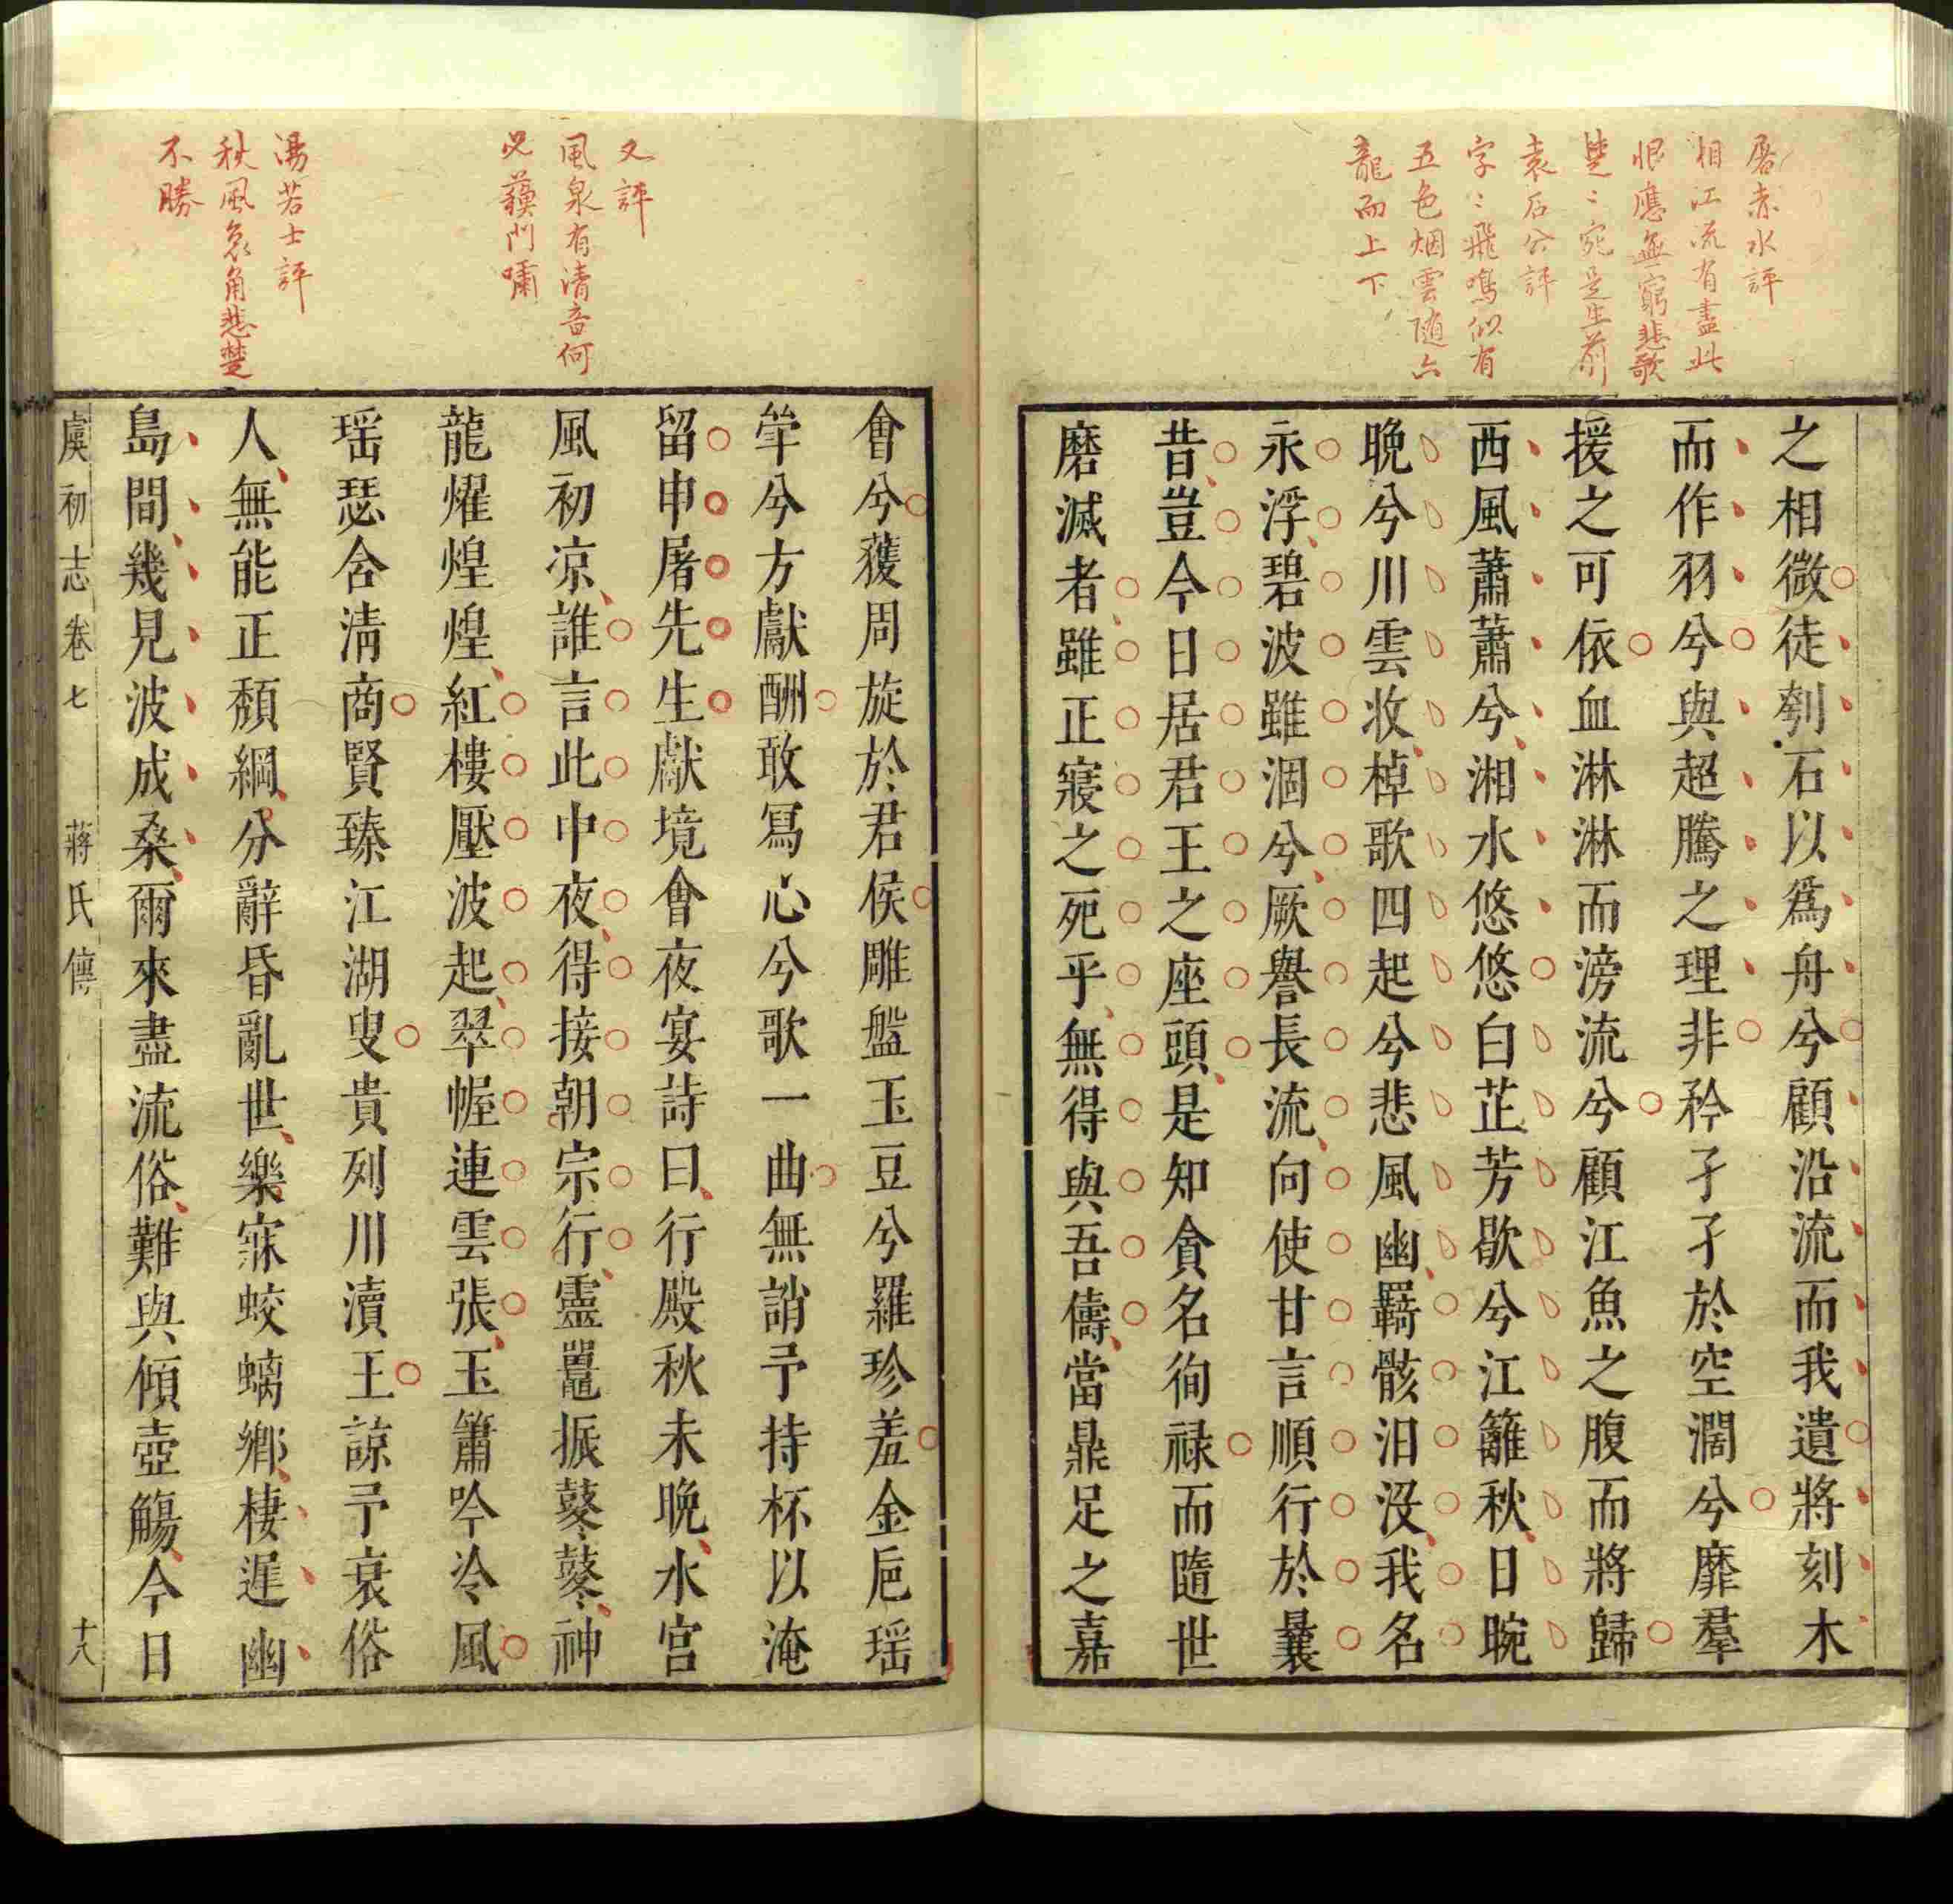 屠赤水評
相江流有盡此
恨應無窮悲歌
楚〻宛是生前
袁石公評
字〻飛鳴似有
五色烟雲随六
龍而上下
之相微徒刳石以爲舟兮顧沿流而我遺將刻木
而作羽兮與超騰之理非矜孑孑於空濶兮靡羣
援之可依血淋淋而滂流兮顧江魚之腹而將歸
西風蕭蕭兮湘水悠悠白芷芳歇兮江籬秋日晼
晚兮川雲收棹歌四起兮悲風幽羇骸汨沒我名
永浮碧波雖涸兮厥譽長流向使甘言順行於曩
昔豈今日居君王之座頭是知貪名徇禄而隨世
磨滅者雖正寢之死乎無得與吾儔當鼎足之嘉
又評
風泉有清音何
必蘓門嘯
湯若士評
秋風哀角悲楚
不勝
會兮獲周旋於君侯雕盤玉豆兮羅珍羞金卮瑶
斝兮方獻酬敢冩心兮歌一曲無誚予持杯以淹
留申屠先生獻境會夜宴詩曰行殿秋未晚水宫
風初凉誰言此中夜得接朝宗行靈鼉振鼕鼕神
龍燿煌煌紅樓壓波起翠幄連雲張玉簫吟冷風
瑶瑟含淸商賢臻江湖叟貴列川瀆王諒予衰俗
人無能正頹綱分辭昏亂世樂寐蛟螭鄉棲遲幽
島間幾見波成桑爾來盡流俗難與傾壺觴今日
虞初志卷七
蔣氏傳
十八